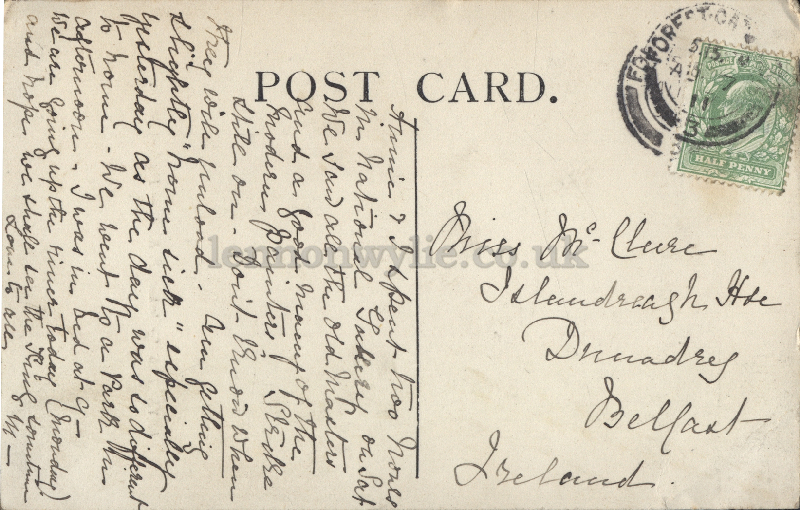 POST CARD.
FOREST-GAT
11
HALF PENNY
Annie & I spent two hours
in National Gallery on Sat
We saw all the old Masters
and a good many of the
modern painters.
still on - Don't know when
they will
- Am getting
slightly "home sick" especially
yesterday as the day was so different
to home - We went to a Park in
afternoon - I was in bed at 9 -
We are going up the river today (Monday)
and hope we shall see the King sometime
Love to all
M -
Miss McClure
Islandreagh Hse
Dunadry
Belfast
Ireland.
lennonwylie.co.uk